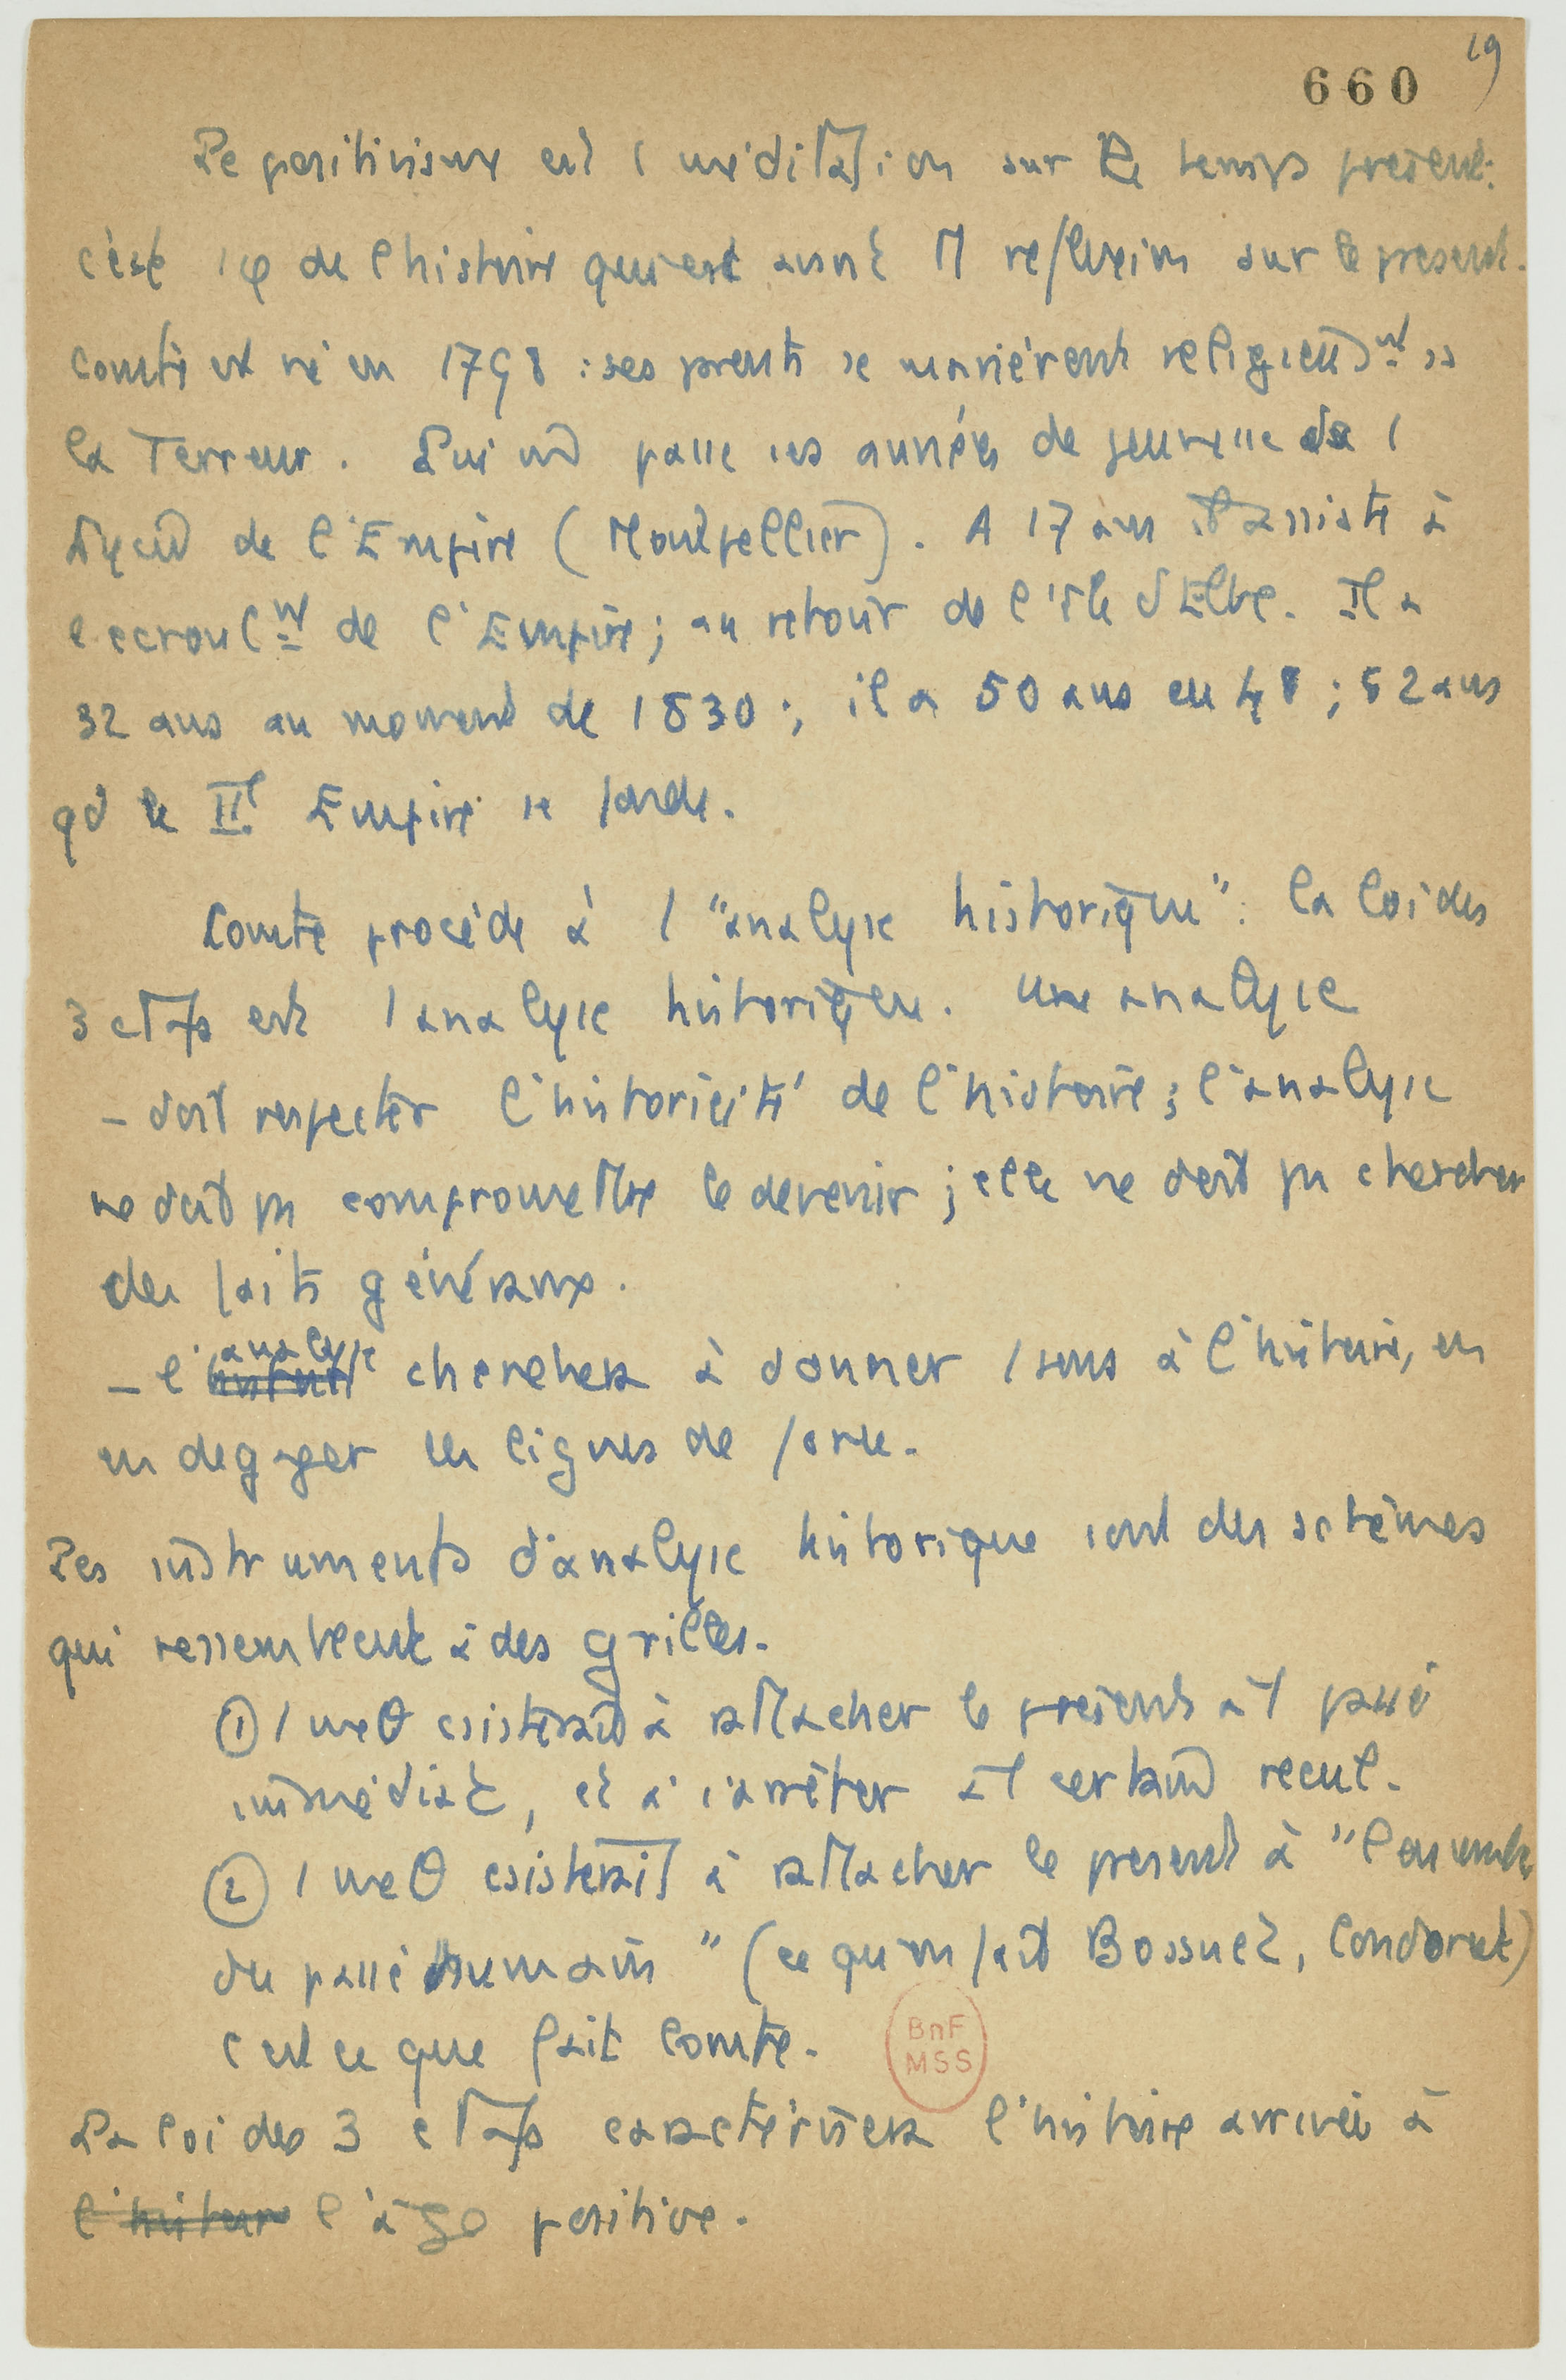 660 19
Le positivisme est 1 méditation sur le temps présent:
c'est 1 φ de l'histoire qui est aussi 1 réflexion sur le présent.
Comte est né en 1798 : ses prents se marièrent religieusnt ss
la Terreur. Lui passe ses années de jeunesse ds 1
lycée de l'Empire (Montpellier). A 17 ans il assiste à
l'ecroulnt de l'Empire; au retour de l'île d'Elbe. Il a
32 ans au moment de 1830 ; il a 50 ans en 48 ; 52 ans
qd le IIe Empire se fonde.
Comte procède à 1 "analyse historique": la loi des
3 etats est 1 analyse historique. Une analyse
- doit respecter l'historicité de l'histoire; l'analyse
ne doit ps compromettre le devenir ; elle ne doit ps chercher
des faits généraux.
- l'analyse cherchera à donner 1 sens à l'histoire, en
en degager les lignes de force.
Les instruments d'analyse historique sont des schèmes
qui ressemblent à des grilles.
① 1 meθ csisterait à rattacher le présent à 1 passé
immédiat, et à s'arrêter à 1 certain recul.
② 1 meθ csisterait à rattacher le present à "l'ensemble
du passé humain" (ce qu'on fait Bossuet, Condorcet)
c'est ce que fait Comte.
BnF
MSS
La loi des 3 etats caractérisera l'histoire arrivée à
l'histoire l'âge positive.